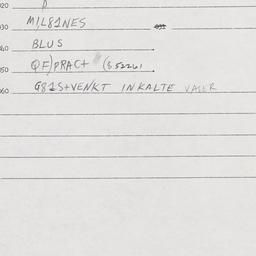 020 p
030 M1,L81NES
040 BLUS
050 QF)PRACT ($5226)
060 G81S+VENKT INKALTE VASER